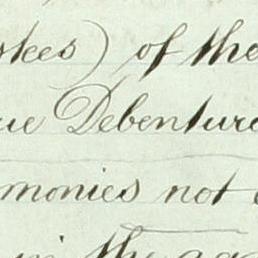 stees) of the
ue Debenture
monies not
in the